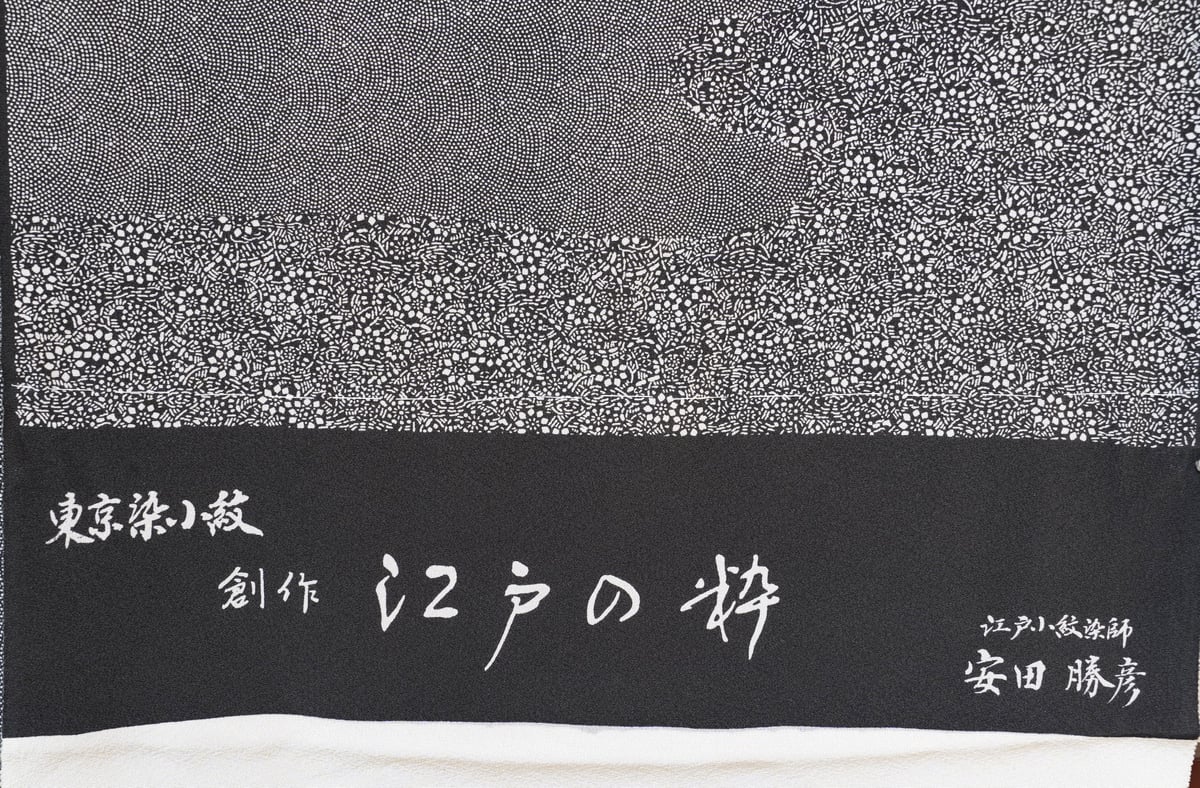 東京染小紋
創作 江戸の粋
江戸小紋染師
安田 勝彦